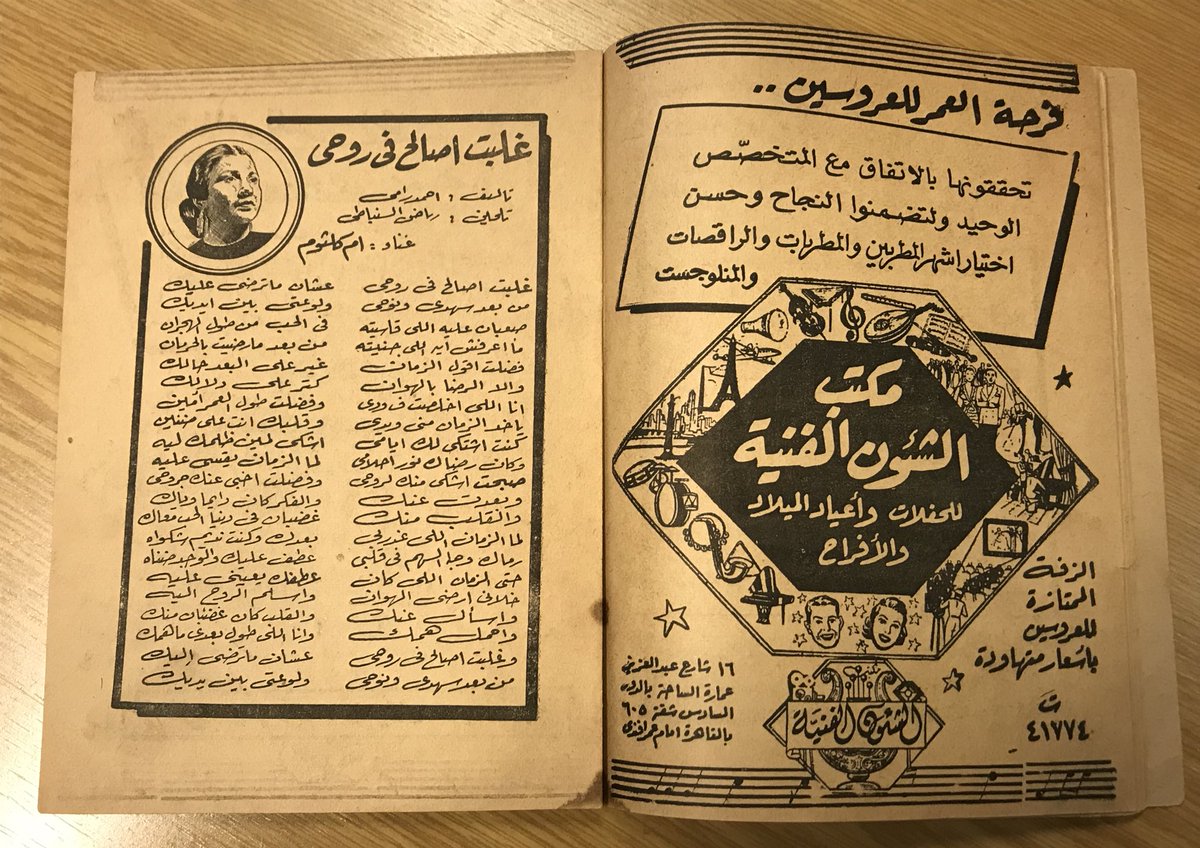 فرحة العمر للعروسين ..
تحققونها بالاتفاق مع المتخصّص
الوحيد ولتضمنوا النجاح وحسن
اختيار اشهر المطربين والمطربات والراقصات
والمنلوجست
مكتب
الشئون الفنية
للحفلات وأعياد الميلاد
والأفراح
الزفة
الممتازة
للعروسين
باسعار متهاودة
ت
٤١٧٧٤
١٦ شارع عبد العزيز
عمارة الساحة بالدور
السادس شقة ٦٠٥
بالقاهرة امام عمر افندى
الشئون الفنية
غلبت اصالح فى روحى
تاليف : احمد رامى
تلحين : رياض السنباطى
غناء : ام كلثوم
غلبت اصالح فى روحى عشان ما ترضى عليك
من بعد سهدى ونوحى ولوعتى بين ايديك
صعبان عليه اللى قاسيته فى الحب من طول الهجران
ما اعرفش أيه للى جنيته من بعد ما رضيت بالحرمان
فضلت اقول الزمان غير على البعد حالك
والا الرضا بالهوان كتر على دلالك
انا اللى اخلصت فى ودى وفضلت طول العمر امين
ياخد الزمان منى ويدى وقلبك انت على ضنين
كنت اشتكى لك ايامى اشكى لمين ظلمك ليه
وكان رضاك نور احلامى لما الزمان يقسى عليه
صبحت اشكى منك لروحى وفضلت اخبى عنك جروحى
وبعدت عنك والفكر كان دايما وياك
والقلب منك غضبان فى دنيا الحب معاك
لما الزمان اللى غدر بى بعدك وكنت نديم شكواه
رماك وجا السهم فى قلبى عطف عليك والوجد ضناه
حتى الزمان اللى كان عطفك عليه
خلانى ارضى الهوان واسلم الروح اليه
واسأل عنك والقلب كان غضبان منك
واحمل همك وانا اللى طول بعدى ما همك
وغلبت اصالح فى روحى عشان ما ترضى اليك
من بعد سهدى ونوحى ولوعتى بين يديك